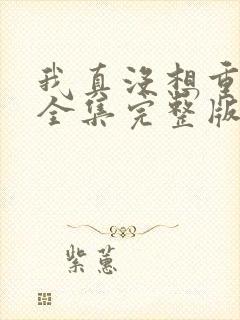 我真没想重
全集完整版
紫蕙